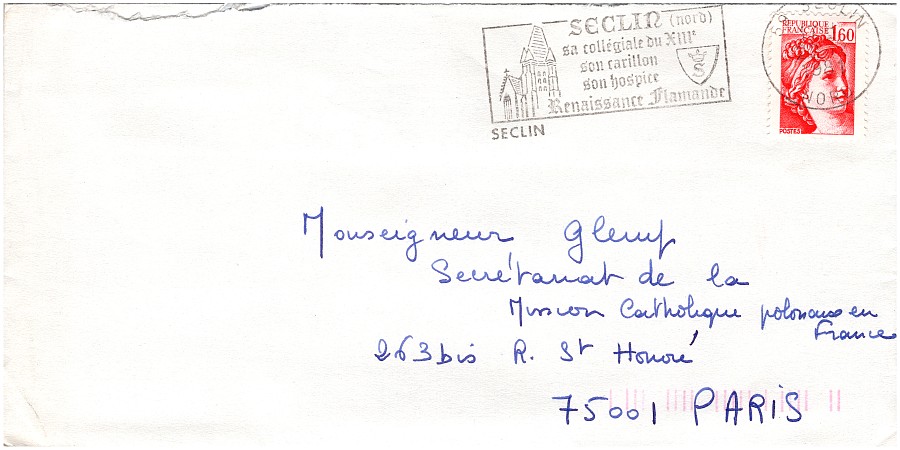 SECLIN (nord)
sa collégiale du XIIIe
son carillon
son hospice
Renaissance Flamande
S
SECLIN
SECLIN
RÉPUBLIQUE
FRANÇAISE 1,60
POSTES
Monseigneur Glemp
Secrétariat de la
Mission Catholique polonaise en
France
263 bis R. St Honoré
75001 PARIS